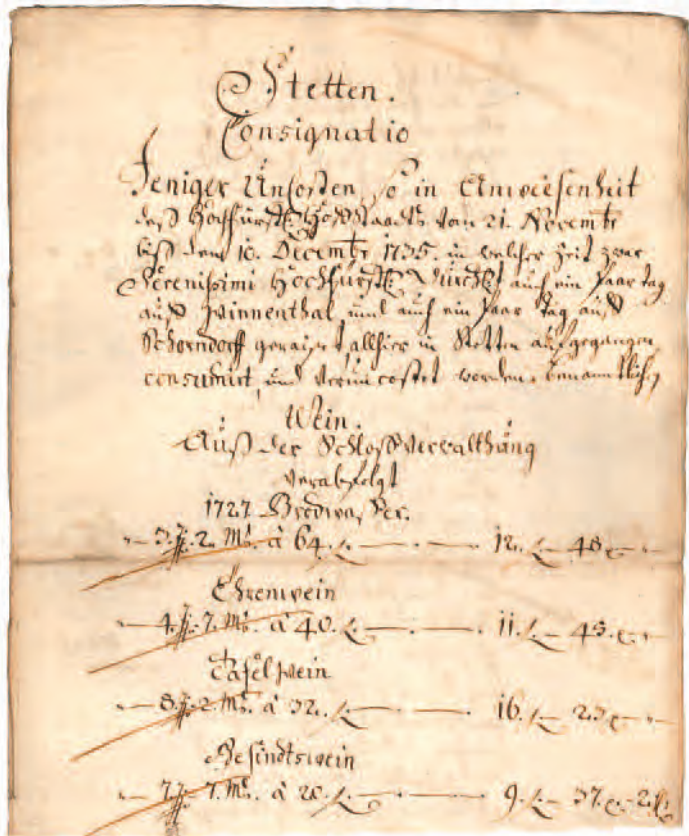 Stetten.
Consignatio
Jeniger Uncosten, so in Anweesenheit
deß Hochfürstl. Hoffstaadts vom 21. Novembr.
biß den 10. Decembr. 1735. in welcher Zeit zwar
Serenissimi Hochfürstl. Durchlt. auch ein paar tag
auß Winnenthal und auch ein paar tag auß
Schorndorff geraißt allhier in Stetten aufgegangen,
consumirt, und veruncostet worden, benanntlich,
Wein.
Auß der Schloßverwalthung
verabfolgt
1727. Brodwasser.
2. Ms. à 64. 12. 48
Ehrenwein
4. 7. Ms. à 40. 11. 45.
Tafelwein
8. 2. Ms. à 32. 16. 23
Gesindtswein
7. 7. Ms. à 20. 9. 37. 2.